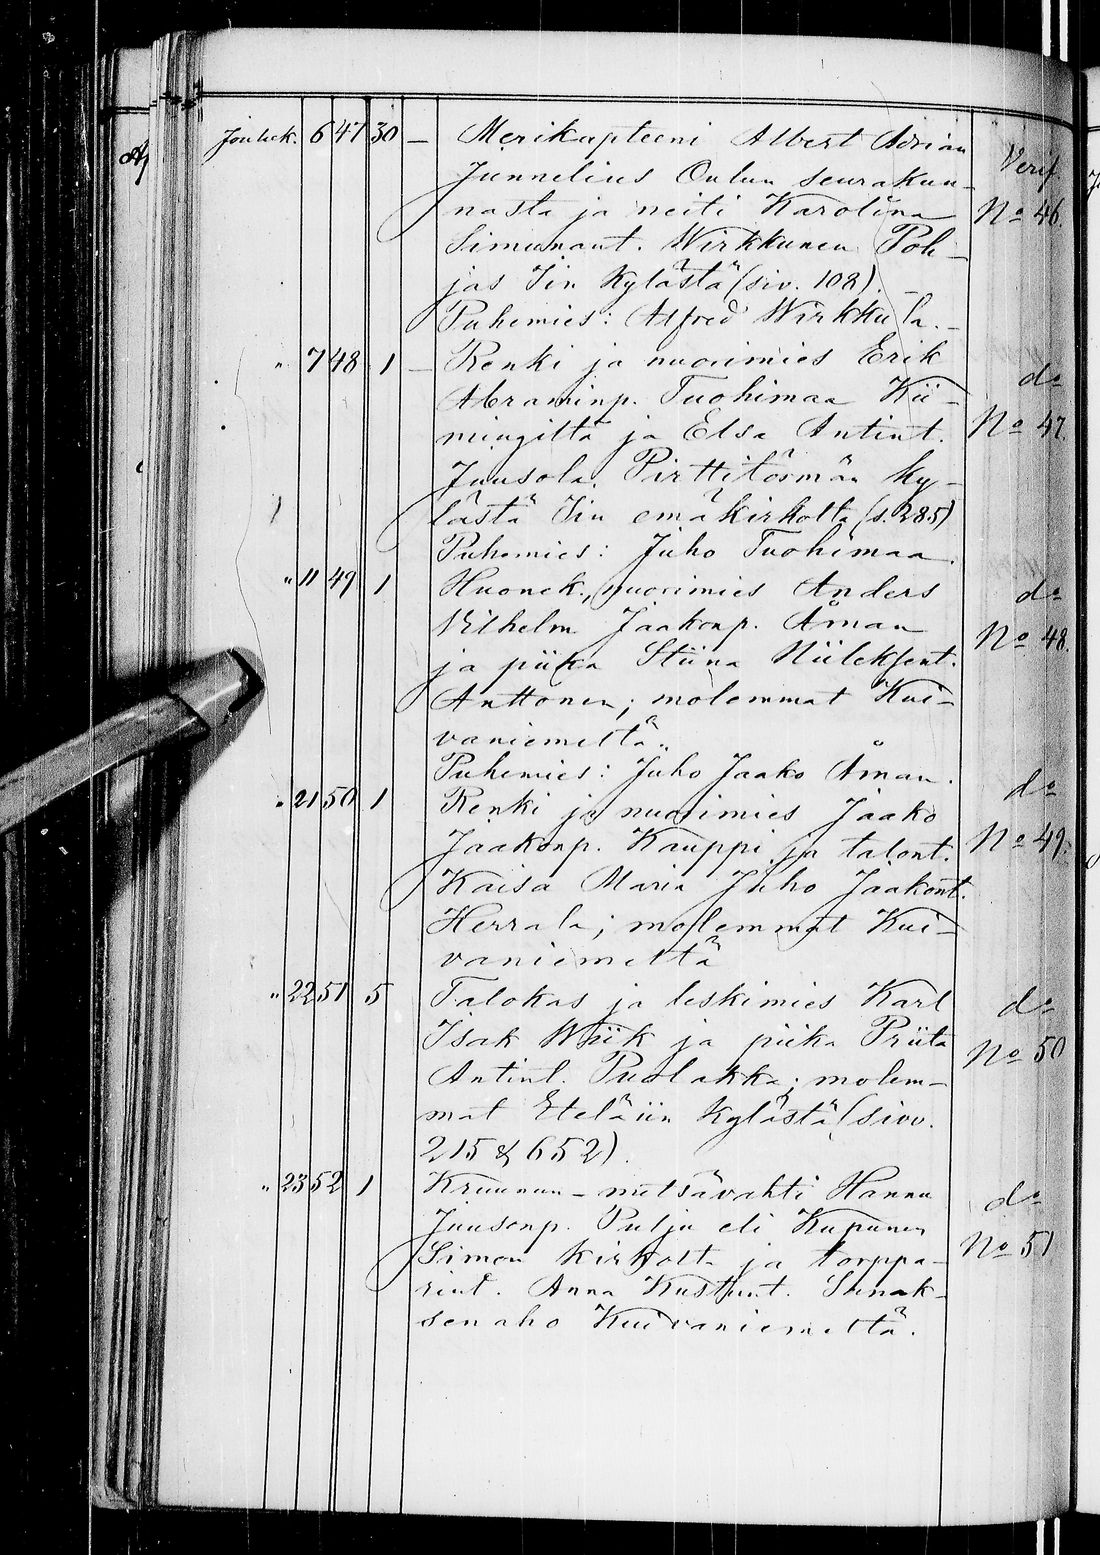 Jouluk. 6 47 30 — Merikapteeni Albert Adrian
Junnelius Oulun seurakun- Verif.
nasta ja neiti Karolina No 46.
Simunant. Wirkkunen Poh-
jas Iin kylästä (siv. 108). —
Puhemies: Alfred Wirkkula. —
" 7 48 1 — Renki ja nuorimies Erik do
Abraminp. Tuohimaa Kii-
mingiltä ja Elsa Antint. No 47.
Juusola, Pirttitörmän ky-
lästä Iin emäkirkolta (s. 285)
Puhemies: Juho Tuohimaa.
" 11 49 1 Huonek., nuorimies Anders do
Vilhelm Jaakonp. Åman No 48.
ja piika Stiina
Anttonen; molemmat Kui-
vaniemeltä..
Puhemies: Juho Jaako Åman.
" 21 50 1 Renki ja nuorimies Jaako do
Jaakonp. Kauppi ja talont. No 49.
Kaisa Maria Juho Jaakont.
Herrala; molemmat Kui-
vaniemeltä
" 22 51 5 Talokas ja leskimies Karl do
Isak Wiik ja piika Priita No 50
Antint. Puolakka; molem-
mat Eteläiin kylästä (sivv.
215 & 652).
" 23 52 1 Kruunun-metsävahti Hannu do
Juusonp. Pulju eli Kupunen No 51
Simon kirkolta ja torppa-
rint. Anna Kustunt.
senaho Kuivaniemeltä.